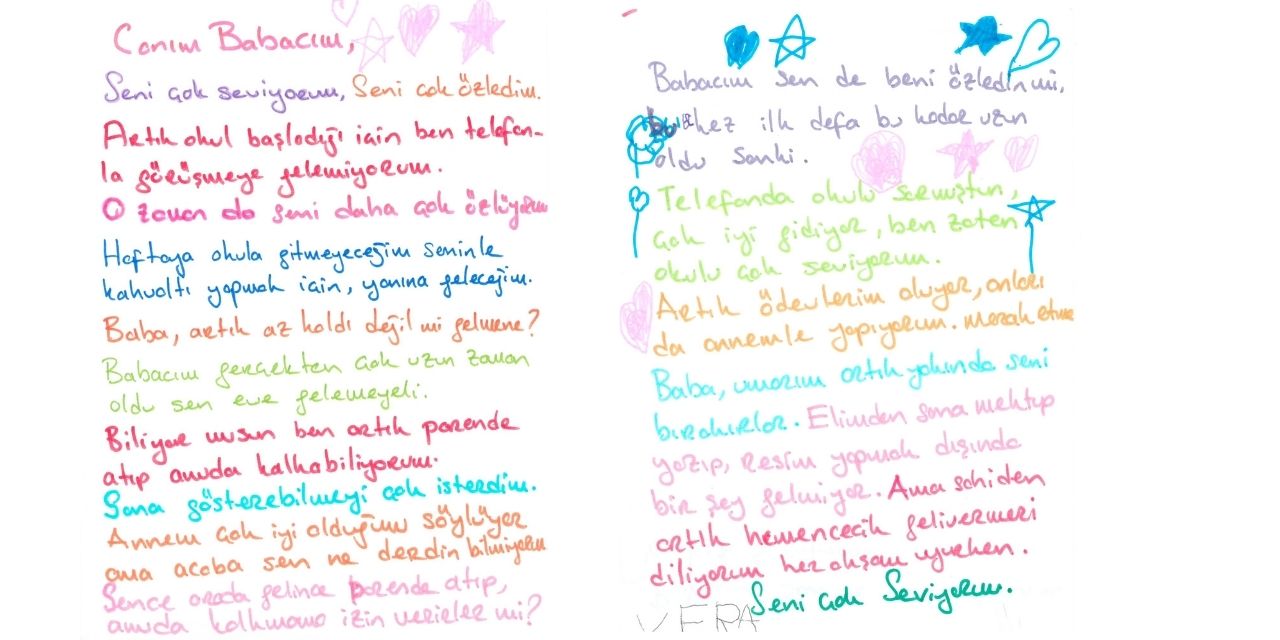 Canım Babacım,
Seni çok seviyorum, Seni çok özledim.
Artık okul başladığı için ben telefon-
la görüşmeye gelemiyorum.
O zaman da seni daha çok özlüyorum
Haftaya okula gitmeyeceğim seninle
kahvaltı yapmak için, yanına geleceğim.
Baba, artık az kaldı değil mi gelmene?
Babacım gerçekten çok uzun zaman
oldu sen eve gelemeyeli.
Biliyor musun ben artık parende
atıp amuda kalkabiliyorum.
Sana gösterebilmeyi çok isterdim.
Annem çok iyi olduğumu söylüyor
ama acaba sen ne derdin bilmiyorum
Sence orada gelince parende atıp,
amuda kalkmama izin verirler mi?
Babacım sen de beni özledin mi,
bu kez ilk defa bu kadar uzun
oldu sanki.
Telefonda okulu sormuştun,
çok iyi gidiyor, ben zaten
okulu çok seviyorum.
Artık ödevlerim oluyor, onları
da annemle yapıyorum. merak etme
Baba, umarım artık yakında seni
bırakırlar. Elimden sana mektup
yazıp, resim yapmak dışında
bir şey gelmiyor. Ama sahiden
artık hemencecik gelivermeni
diliyorum her akşam uyurken.
Seni çok Seviyorum.
VERA